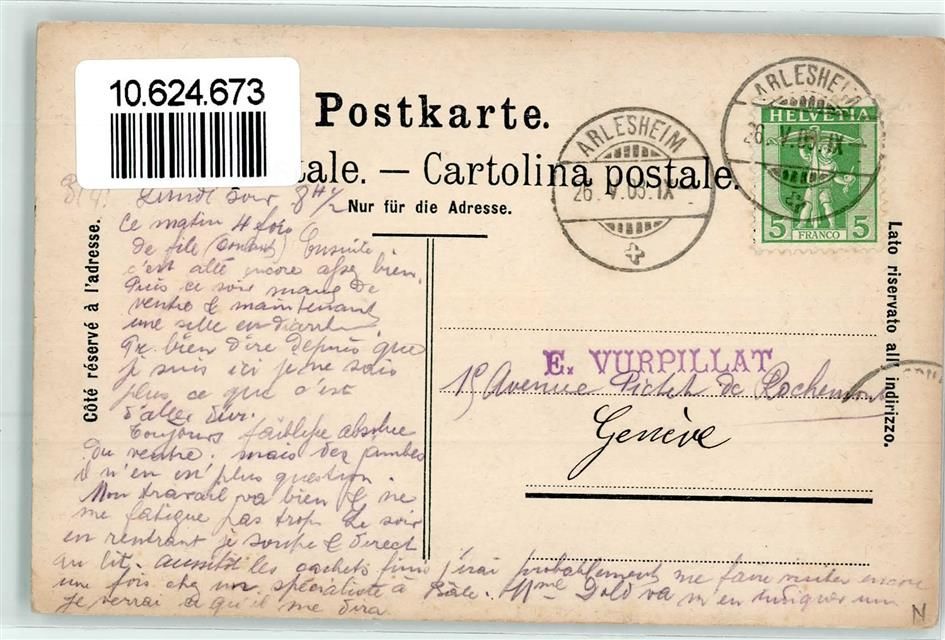 10.624.673
Postkarte.
tale. — Cartolina postale.
Nur für die Adresse.
Côté réservé à l'adresse.
Lato riservato all' indirizzo.
ARLESHEIM
26. V. 09. IX
ARLESHEIM
26. V. 09. IX
HELVETIA
5 FRANCO 5
E. VURPILLAT
15 Avenue Pictet de Rochemont
Genève
Lundi soir 8 H ½
Ce matin 4 fois
de file Ensuite
c'est allé encore assez bien.
Puis ce soir maux de
ventre & maintenant
une selle en
bien dire depuis que
je suis ici je ne sais
plus ce que c'est
d'aller
Toujours faiblesse absolue
du ventre. mais des jambes
il n'en est plus question.
Mon travail va bien & ne
me fatigue pas trop. Le soir
en rentrant je soupe & direct
au lit. aussitôt les cachets finis j'irai probablement me faire visiter encore
une fois chez un spécialiste à Bâle. Mme Dold va m'en indiquer un
je verrai ce qu'il me dira.
N